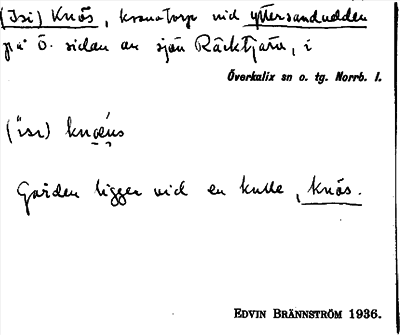 (Isi) Knös, kronotorp vid yttersandudden
på Ö. sidan av sjön Räcktjärv, i
Överkalix sn o. tg. Norrb. l.
(ìsi)
Gården ligger vid en kulle, knös.
EDVIN BRÄNNSTRÖM 1936.